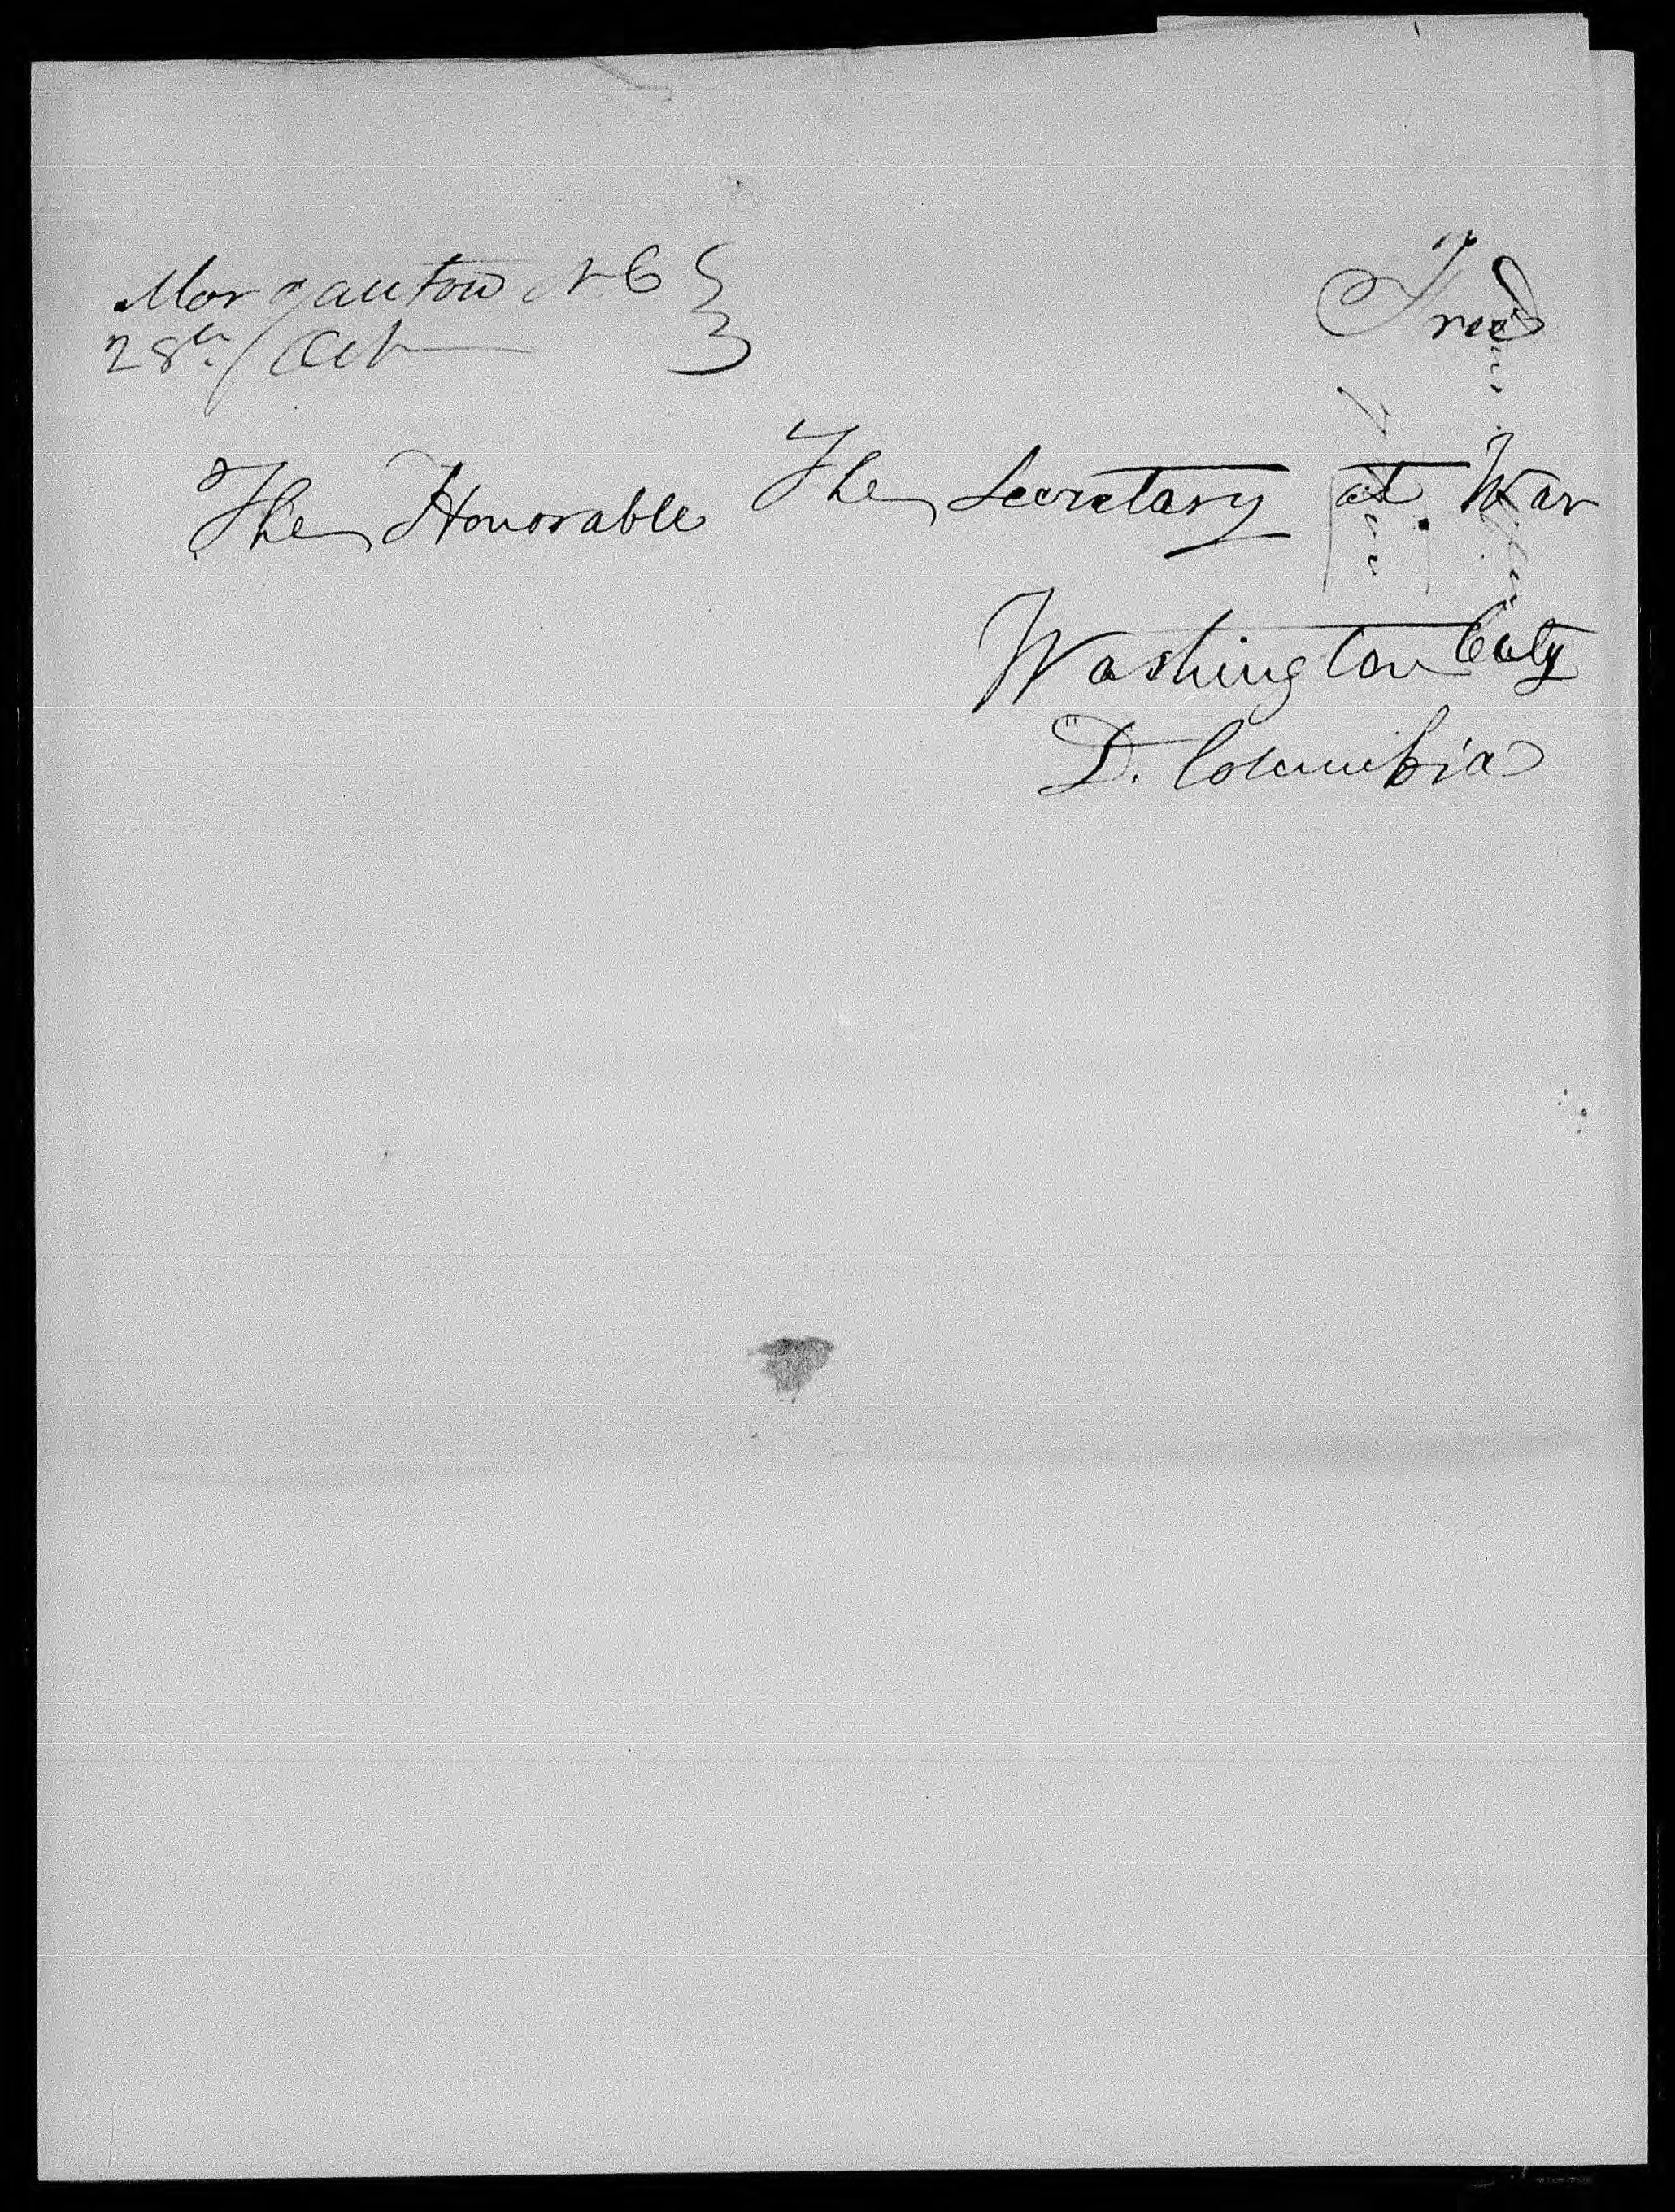 Morganton N C
28th / Oct
Free
The Honorable The Secretary at War
Washington City
D. Columbia